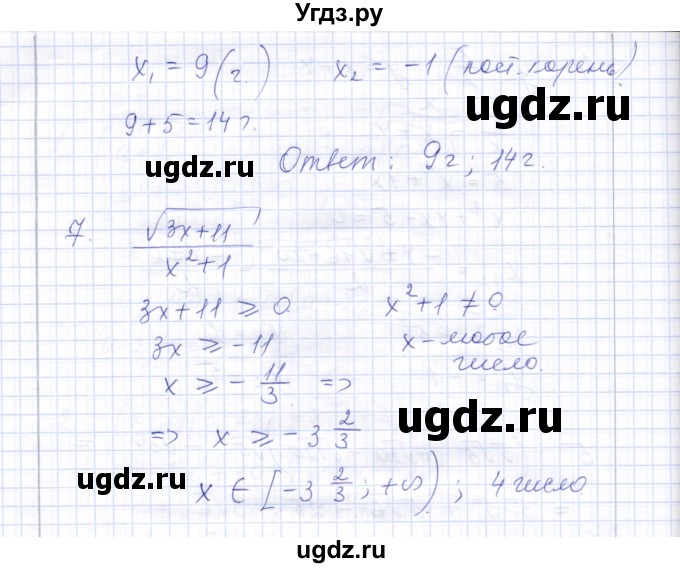 Угдз.ру
x₁ = 9 (г.) x₂ = -1 (пост. корень)
ugdz.ru
9 + 5 = 14 г.
ugdz.ru
Ответ: 9 г; 14 г.
7. √(3x+11) / (x²+1)
ugdz.ru
3x + 11 ≥ 0 x² + 1 ≠ 0
3x ≥ -11 x - любое
число.
x ≥ - 11/3 =>
ugdz.ru
=> x ≥ -3 2/3
ugdz.ru
x ∈ [-3 2/3; +∞); 4 число
ugdz.ru